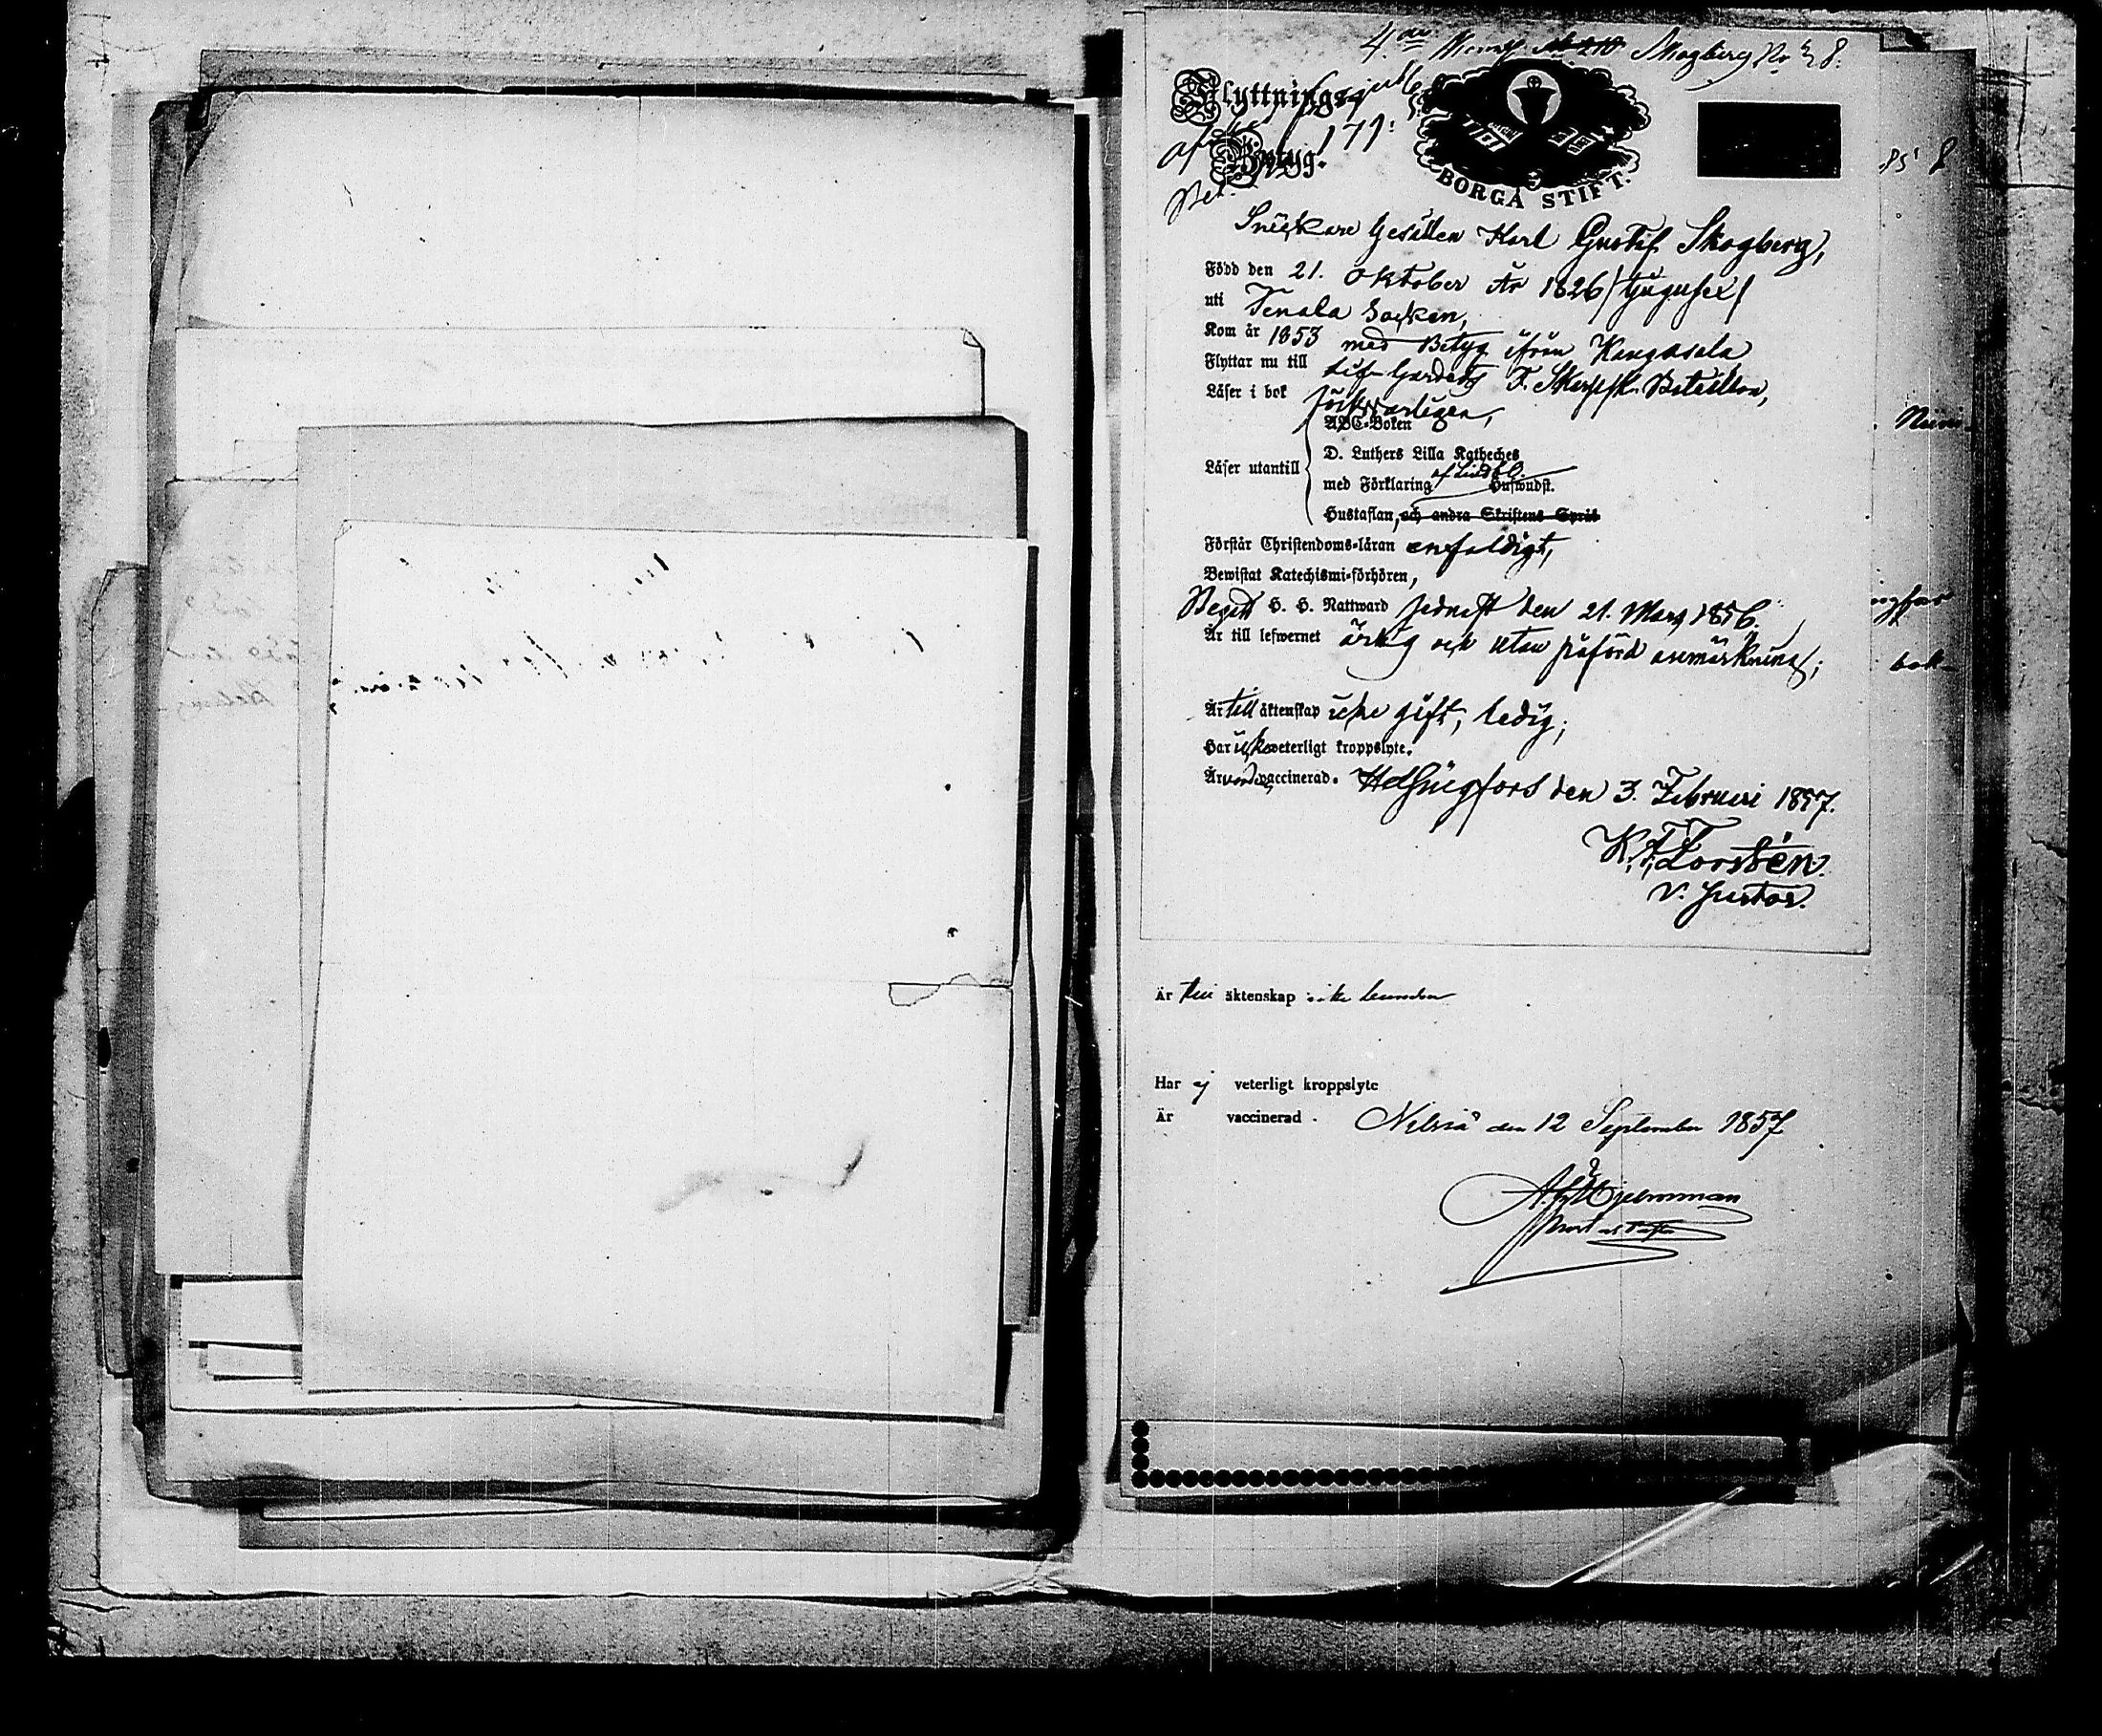 4de Skogberg No 28.
Flyttnings-
Betyg.
171.
BORGÅ STIFT.
Snickare Gesällen Karl Gustif Skogberg,
Född den 21. Oktober År 1826/tjugusex/
uti Tenala Socken,
Kom år 1853 med Betyg ifrån Kangasala
Flyttar nu till Lif-Gardets F. Skarpsk. Bataillon,
Läser i bok försvarligen,
ABC-Boken
D. Luthers Lilla Katheches
Läser utantill
med Förklaring af Lindbl. Huswudst.
Hustaflan, och andra Skriftens Språk
Förstår Christendoms-läran enfaldigt,
Bewistat Katechismi-förhören,
Begått H. H. Nattward sednast den 21. Mars 1856.
Är till lefwernet ärlig och utan påförd anmärkning;
Är till äktenskap icke gift, ledig;
Har icke weterligt kroppslyte.
Är vaccinerad. Helsingfors den 3. Februari 1857.
K. F. Forstén.
V. Pastor.
Är till äktenskap icke bunden
Har ej veterligt kroppslyte
Är vaccinerad. Nilsiä den 12 September 1857
Hjelmman
85
bok-